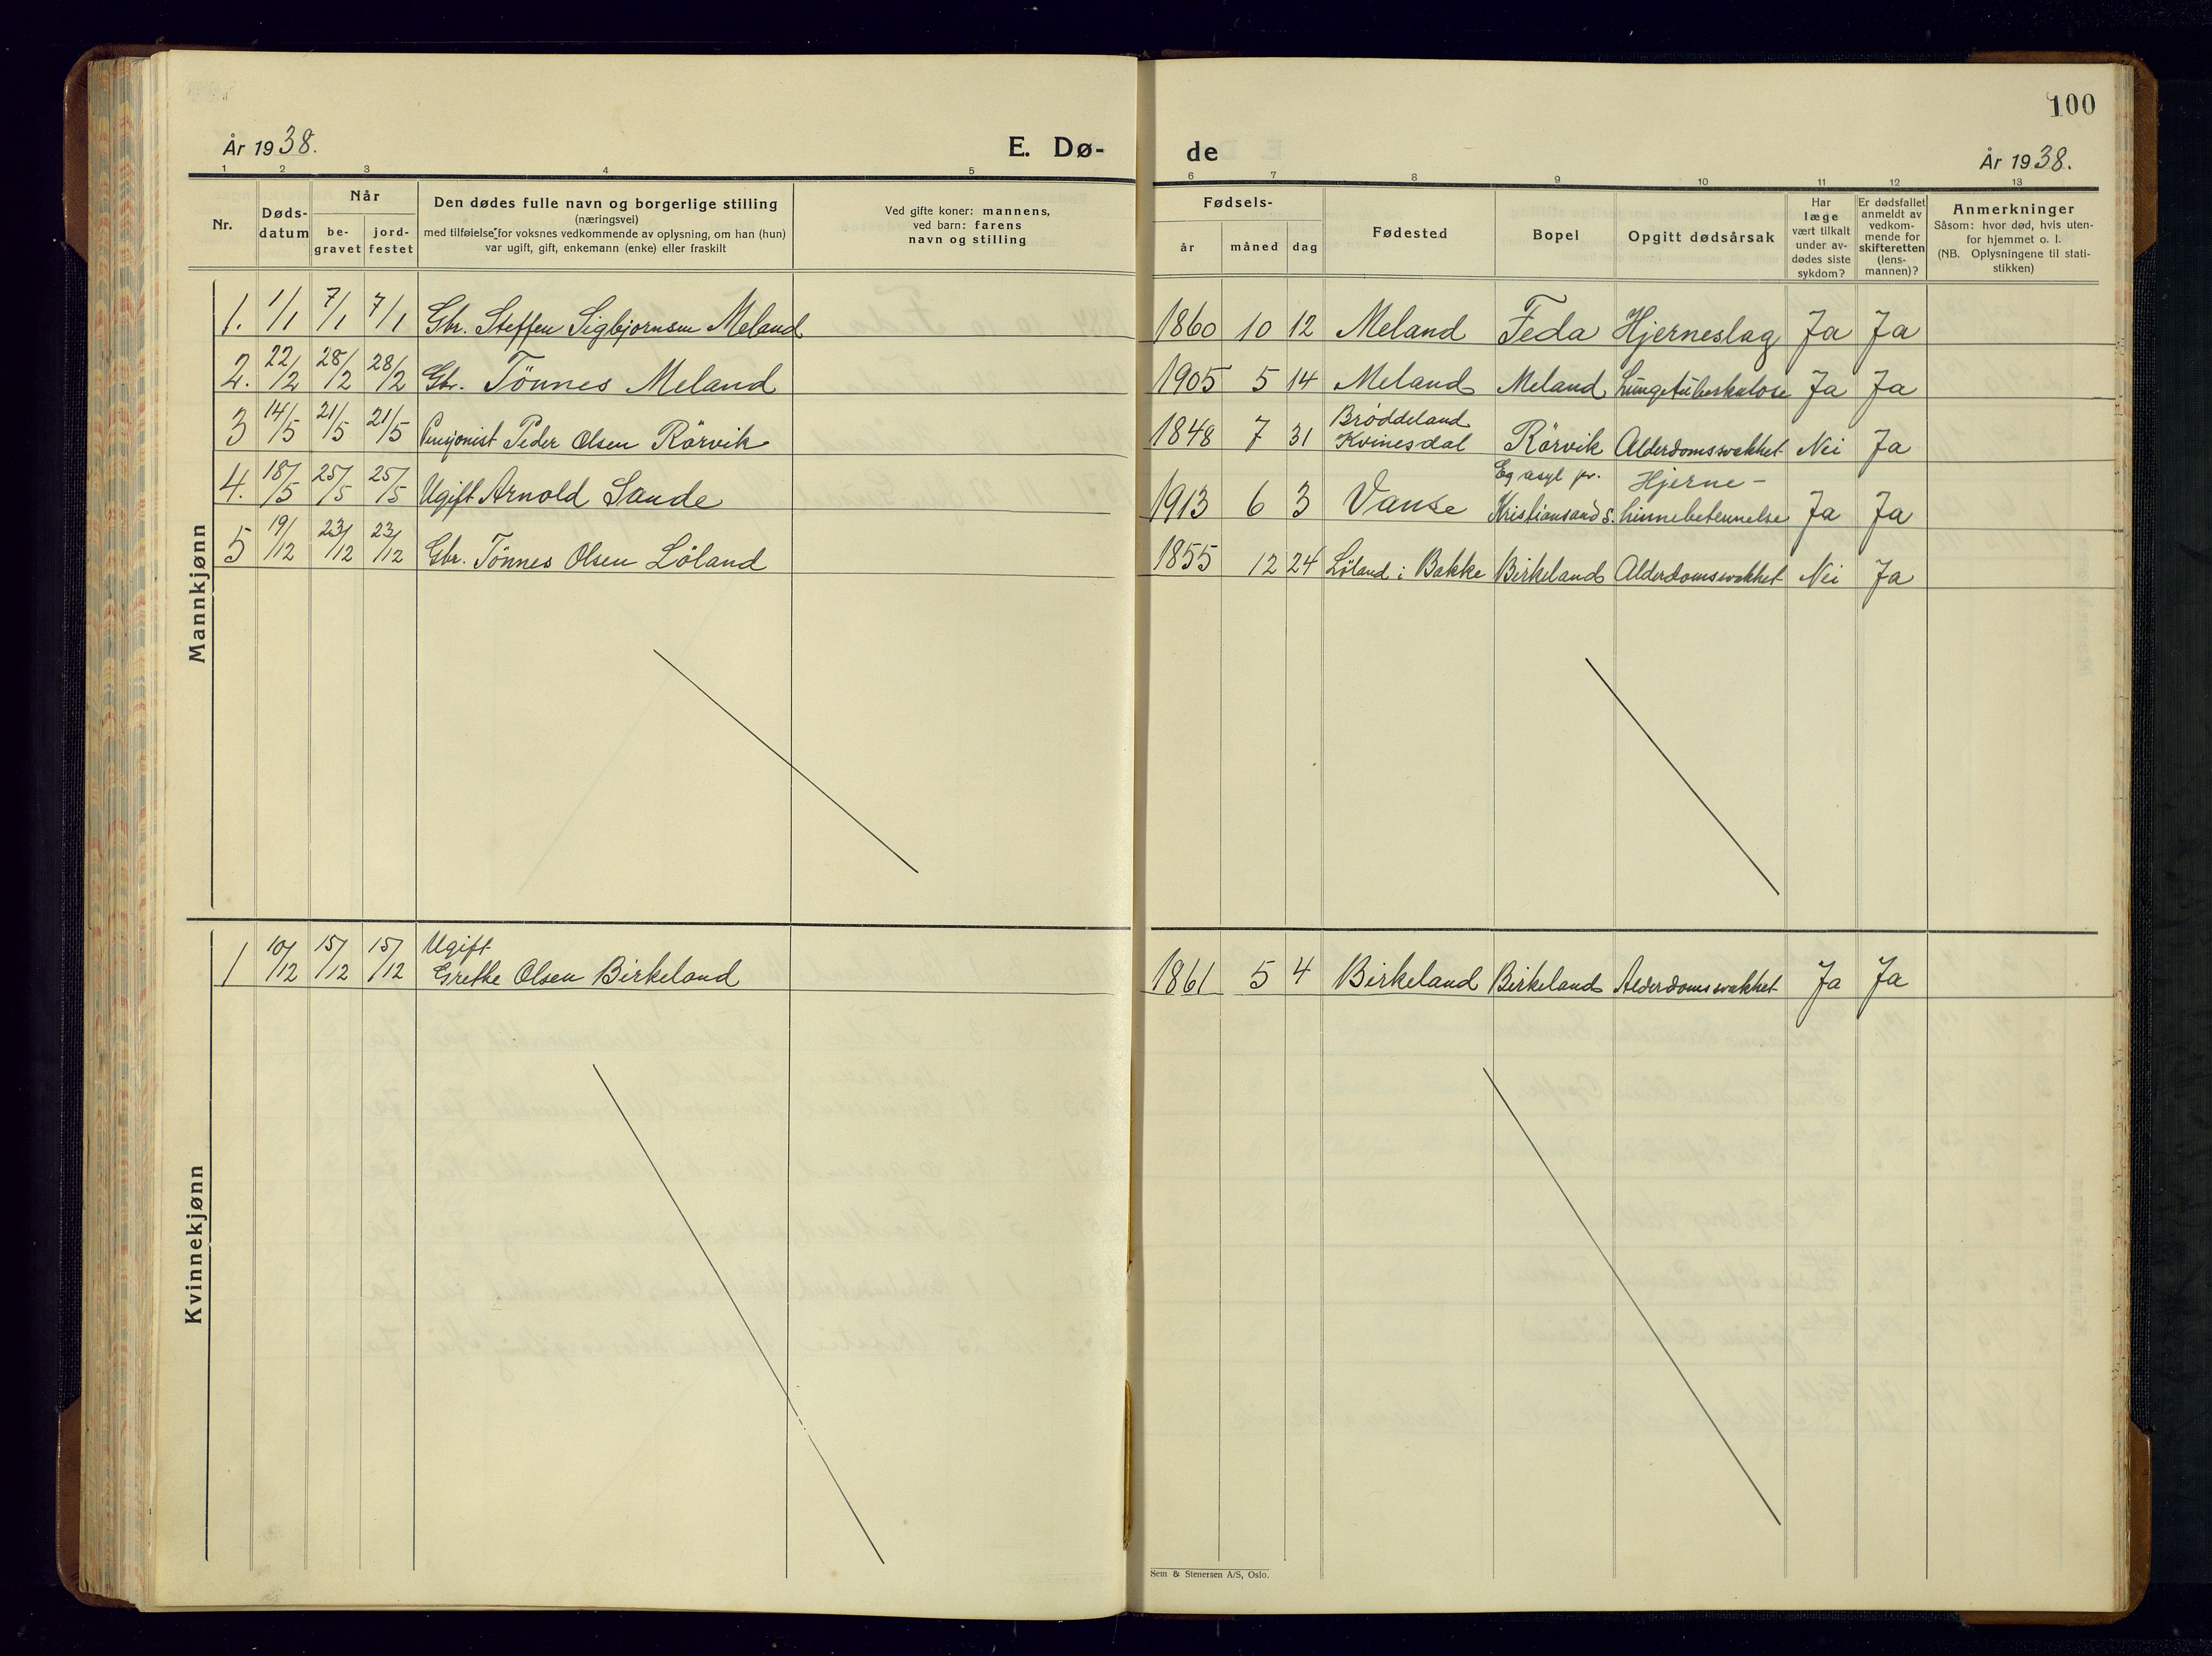 100
År 1938.
E. Dø-
de
År 1938.
1 2 3 4 5 6 7 8 9 10 11 12 13
Nr.
Døds-
datum
Når
be-
gravet
jord-
festet
Den dødes fulle navn og borgerlige stilling
(næringsvei)
med tilføielse for voksnes vedkommende av oplysning, om han (hun)
var ugift, gift, enkemann (enke) eller fraskilt
Ved gifte koner: mannens,
ved barn: farens
navn og stilling
Fødsels-
år måned dag
Fødested
Bopel
Opgitt dødsårsak
Har
læge
vært tilkalt
under av-
dødes siste
sykdom?
Er dødsfallet
anmeldt av
vedkom-
mende for
skifteretten
(lens-
mannen)?
Anmerkninger
Såsom: hvor død, hvis uten-
for hjemmet o. l.
(NB. Oplysningene til stati-
stikken)
Mannkjønn
1. 1/1 7/1 7/1 Gbr. Steffen Sigbjørnsen Meland 1860 10 12 Meland Feda Hjerneslag Ja Ja
2. 22/2 28/2 28/2 Gbr. Tönnes Meland 1905 5 14 Meland Meland Lungetuberkulose Ja Ja
3 14/5 21/5 21/5 Pensjonist Peder Olsen Rörvik 1848 7 31 Brøddeland
Kvinesdal Rörvik Alderdomssvakhet Nei Ja
4. 18/5 25/5 25/5 Ugift Arnold Sande 1913 6 3 Vanse Eg asyl pr.
Kristiansand S. Hjerne-
hinnebetennelse Ja Ja
5 19/12 23/12 23/12 Gbr. Tönnes Olsen Löland 1855 12 24 Löland i Bakke Birkeland Alderdomssvakhet Nei Ja
Kvinnekjønn
1 10/12 15/12 15/12 Ugift
Grethe Olsen Birkeland 1861 5 4 Birkeland Birkeland Alderdomssvakhet Ja Ja
Sem & Stenersen A/S, Oslo.